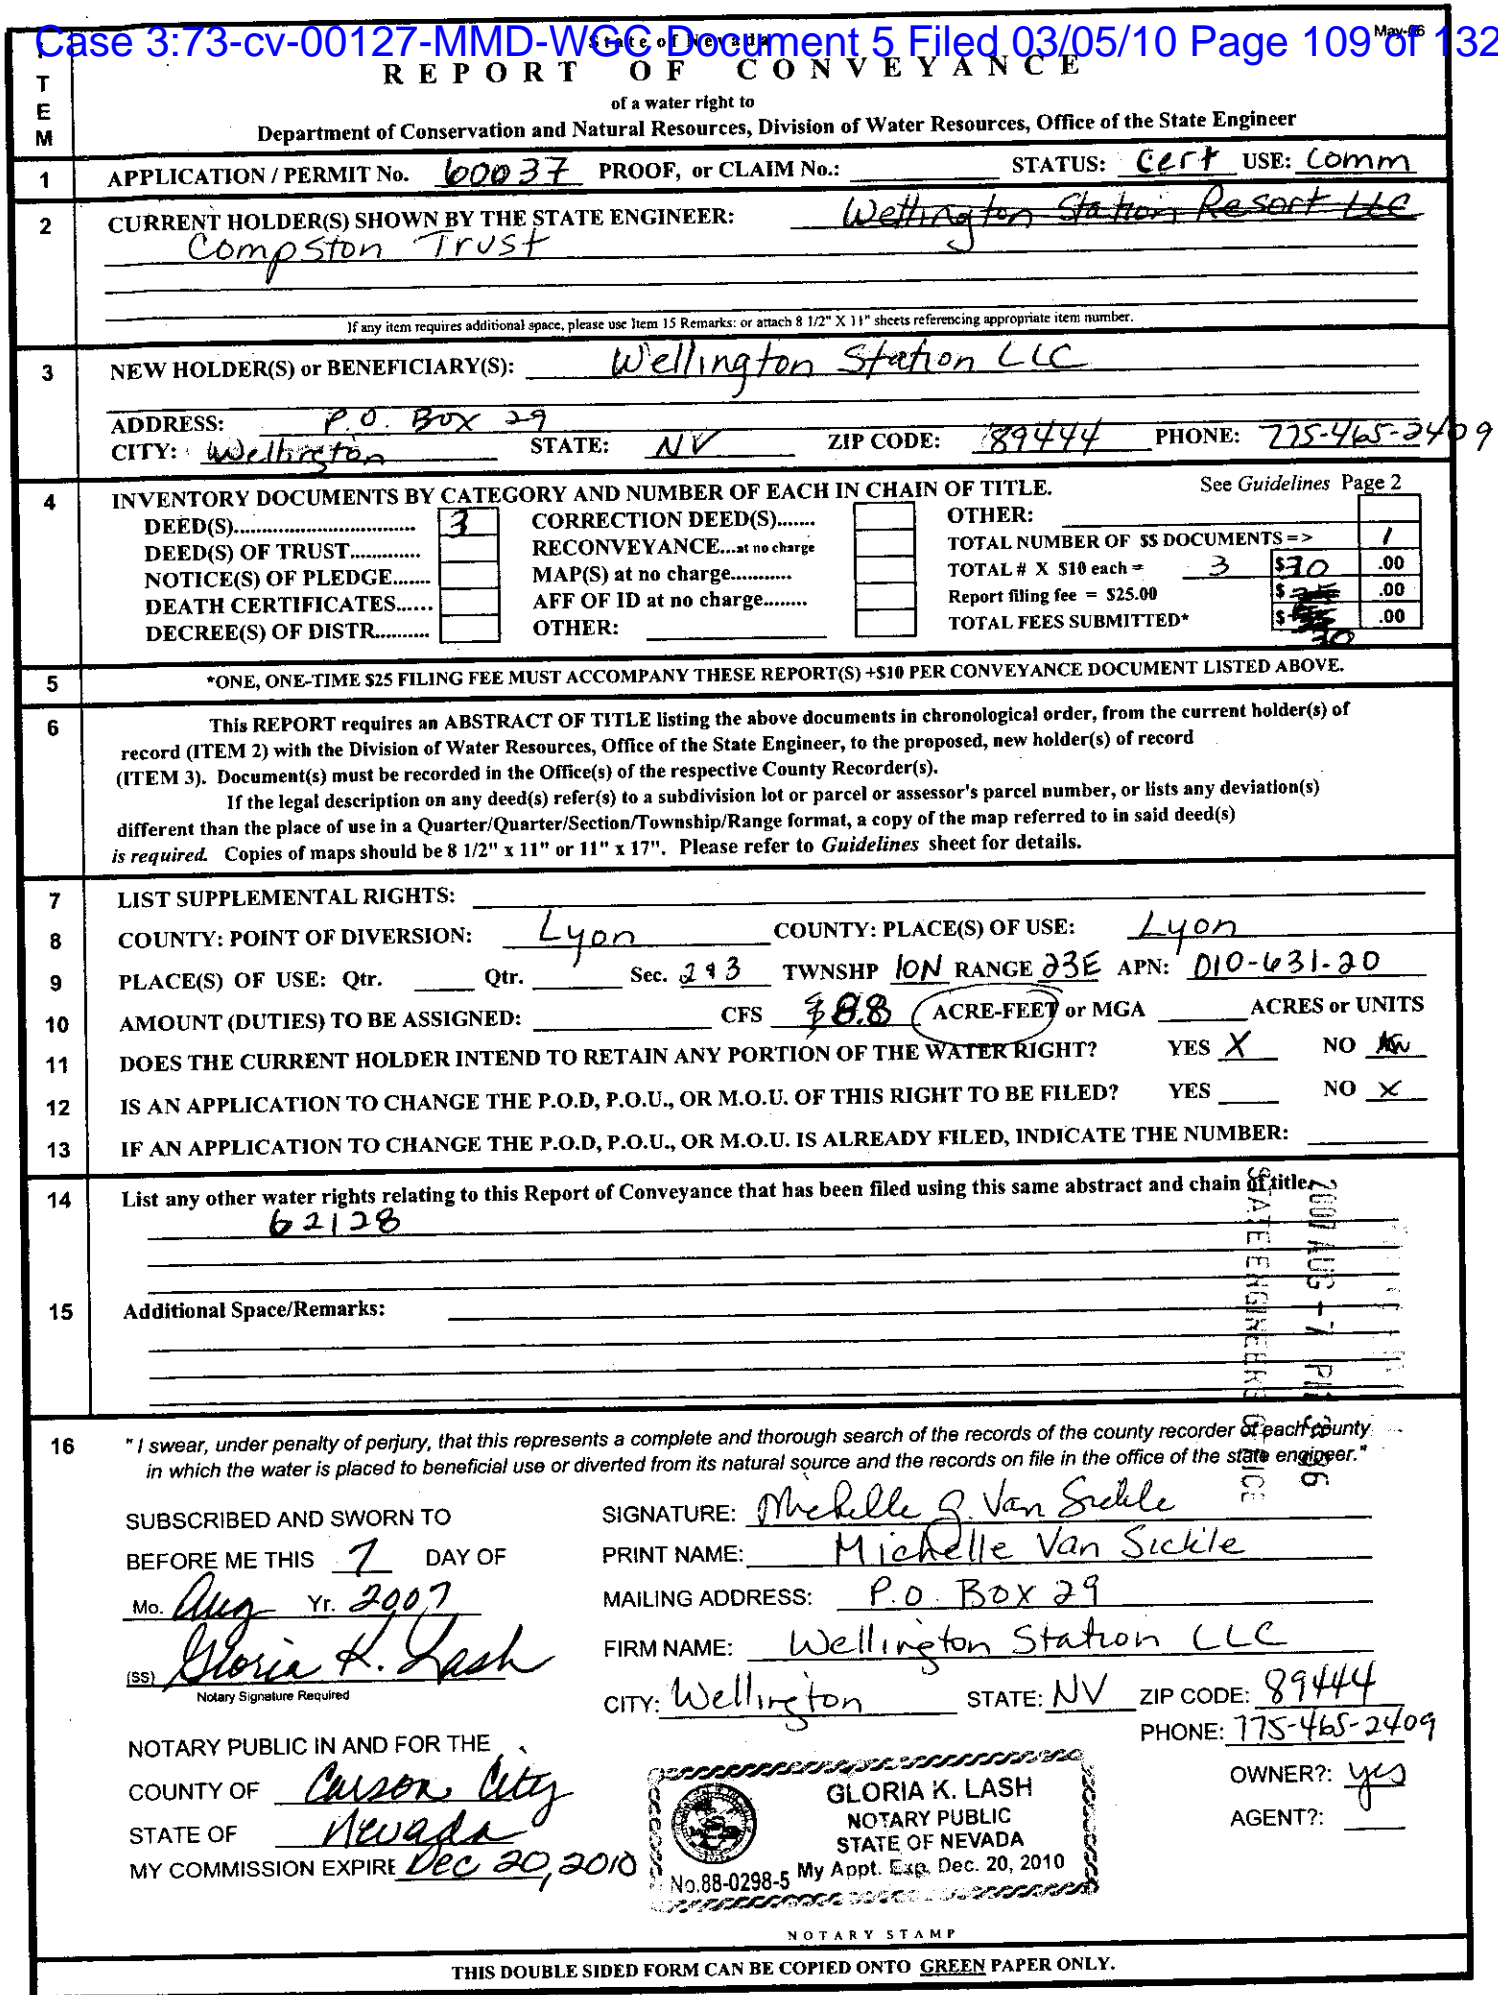 Case 3:73-cv-00127-MMD-WGC Document 5 Filed 03/05/10 Page 109 of 132
State of Nevada
May-06
REPORT OF CONVEYANCE
of a water right to
Department of Conservation and Natural Resources, Division of Water Resources, Office of the State Engineer
ITEM
1 APPLICATION / PERMIT No. 60037 PROOF, or CLAIM No.: STATUS: Cert USE: Comm
2 CURRENT HOLDER(S) SHOWN BY THE STATE ENGINEER: Wellington Station Resort LLC
Compston Trust
If any item requires additional space, please use Item 15 Remarks: or attach 8 1/2" X 11" sheets referencing appropriate item number.
3 NEW HOLDER(S) or BENEFICIARY(S): Wellington Station LLC
ADDRESS: P.O. Box 29
CITY: Wellington STATE: NV ZIP CODE: 89444 PHONE: 775-465-2409
4 INVENTORY DOCUMENTS BY CATEGORY AND NUMBER OF EACH IN CHAIN OF TITLE. See Guidelines Page 2
DEED(S)................................ 3 CORRECTION DEED(S)....... OTHER:
DEED(S) OF TRUST.............. RECONVEYANCE...at no charge TOTAL NUMBER OF $$ DOCUMENTS => 1
NOTICE(S) OF PLEDGE....... MAP(S) at no charge............ TOTAL # X $10 each = 3 $30 .00
DEATH CERTIFICATES...... AFF OF ID at no charge........ Report filing fee = $25.00 $ .00
DECREE(S) OF DISTR.......... OTHER: TOTAL FEES SUBMITTED* $ .00
30
5 *ONE, ONE-TIME $25 FILING FEE MUST ACCOMPANY THESE REPORT(S) +$10 PER CONVEYANCE DOCUMENT LISTED ABOVE.
6 This REPORT requires an ABSTRACT OF TITLE listing the above documents in chronological order, from the current holder(s) of
record (ITEM 2) with the Division of Water Resources, Office of the State Engineer, to the proposed, new holder(s) of record
(ITEM 3). Document(s) must be recorded in the Office(s) of the respective County Recorder(s).
If the legal description on any deed(s) refer(s) to a subdivision lot or parcel or assessor's parcel number, or lists any deviation(s)
different than the place of use in a Quarter/Quarter/Section/Township/Range format, a copy of the map referred to in said deed(s)
is required. Copies of maps should be 8 1/2" x 11" or 11" x 17". Please refer to Guidelines sheet for details.
7 LIST SUPPLEMENTAL RIGHTS:
8 COUNTY: POINT OF DIVERSION: Lyon COUNTY: PLACE(S) OF USE: Lyon
9 PLACE(S) OF USE: Qtr. Qtr. Sec. 2 & 3 TWNSHP 10N RANGE 23E APN: 010-631-20
10 AMOUNT (DUTIES) TO BE ASSIGNED: CFS 8.8 ACRE-FEET or MGA ACRES or UNITS
11 DOES THE CURRENT HOLDER INTEND TO RETAIN ANY PORTION OF THE WATER RIGHT? YES X NO
12 IS AN APPLICATION TO CHANGE THE P.O.D, P.O.U., OR M.O.U. OF THIS RIGHT TO BE FILED? YES NO X
13 IF AN APPLICATION TO CHANGE THE P.O.D, P.O.U., OR M.O.U. IS ALREADY FILED, INDICATE THE NUMBER:
14 List any other water rights relating to this Report of Conveyance that has been filed using this same abstract and chain of title.
62128
15 Additional Space/Remarks:
2007 AUG -7 PM
STATE ENGINEERS OFFICE
16 "I swear, under penalty of perjury, that this represents a complete and thorough search of the records of the county recorder of each county
in which the water is placed to beneficial use or diverted from its natural source and the records on file in the office of the state engineer."
SUBSCRIBED AND SWORN TO SIGNATURE: Michelle G. Van Sickle
BEFORE ME THIS 7 DAY OF PRINT NAME: Michelle Van Sickle
Mo. Aug Yr. 2007 MAILING ADDRESS: P.O. Box 29
(SS) Gloria K. Lash FIRM NAME: Wellington Station LLC
Notary Signature Required
CITY: Wellington STATE: NV ZIP CODE: 89444
PHONE: 775-465-2409
NOTARY PUBLIC IN AND FOR THE
COUNTY OF Carson City
OWNER?: yes
STATE OF Nevada
AGENT?:
MY COMMISSION EXPIRE Dec 20, 2010
GLORIA K. LASH
NOTARY PUBLIC
STATE OF NEVADA
No.88-0298-5 My Appt. Exp. Dec. 20, 2010
NOTARY STAMP
THIS DOUBLE SIDED FORM CAN BE COPIED ONTO GREEN PAPER ONLY.